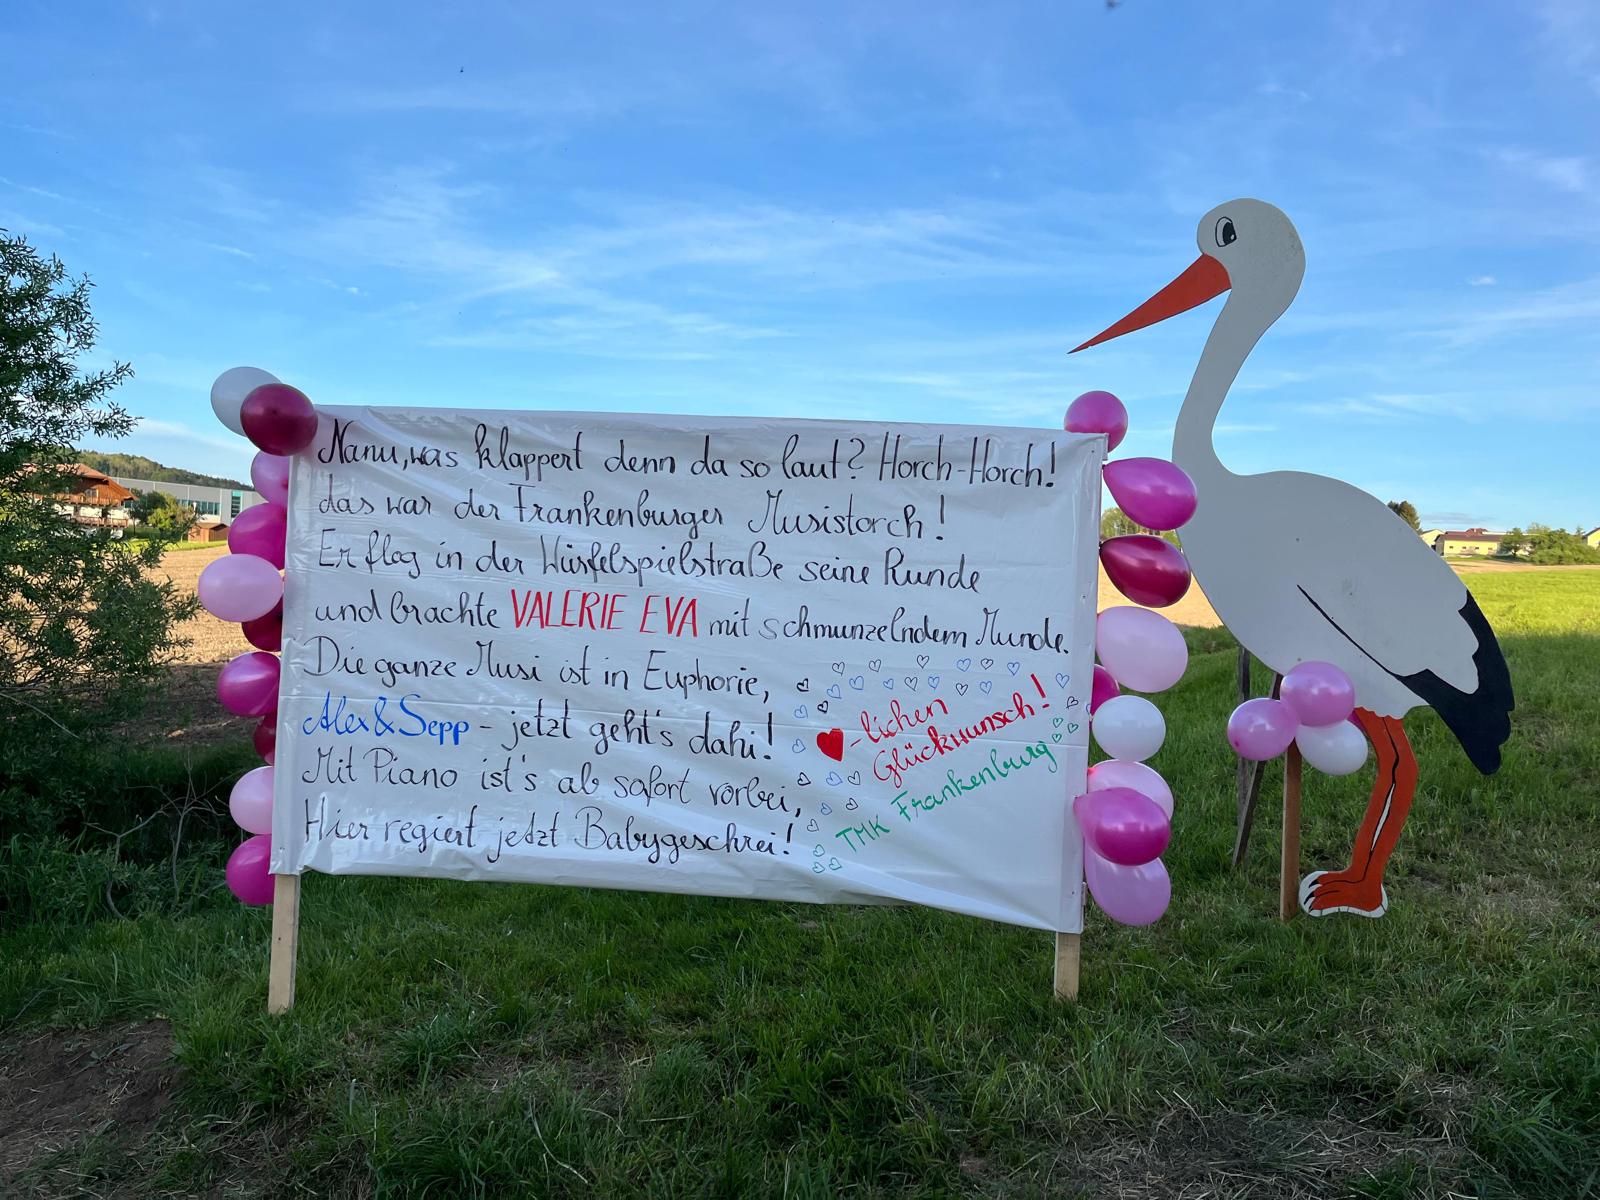 Nanu, was klappert denn da so laut? Horch-Horch!
das war der Frankenburger Musistorch!
Er flog in der Würfelspielstraße seine Runde
und brachte VALERIE EVA mit schmunzelndem Munde.
Die ganze Musi ist in Euphorie,
Alex & Sepp - jetzt geht's dahi!
Mit Piano ist's ab sofort vorbei,
Hier regiert jetzt Babygeschrei!
-lichen
Glückwunsch!
TMK Frankenburg